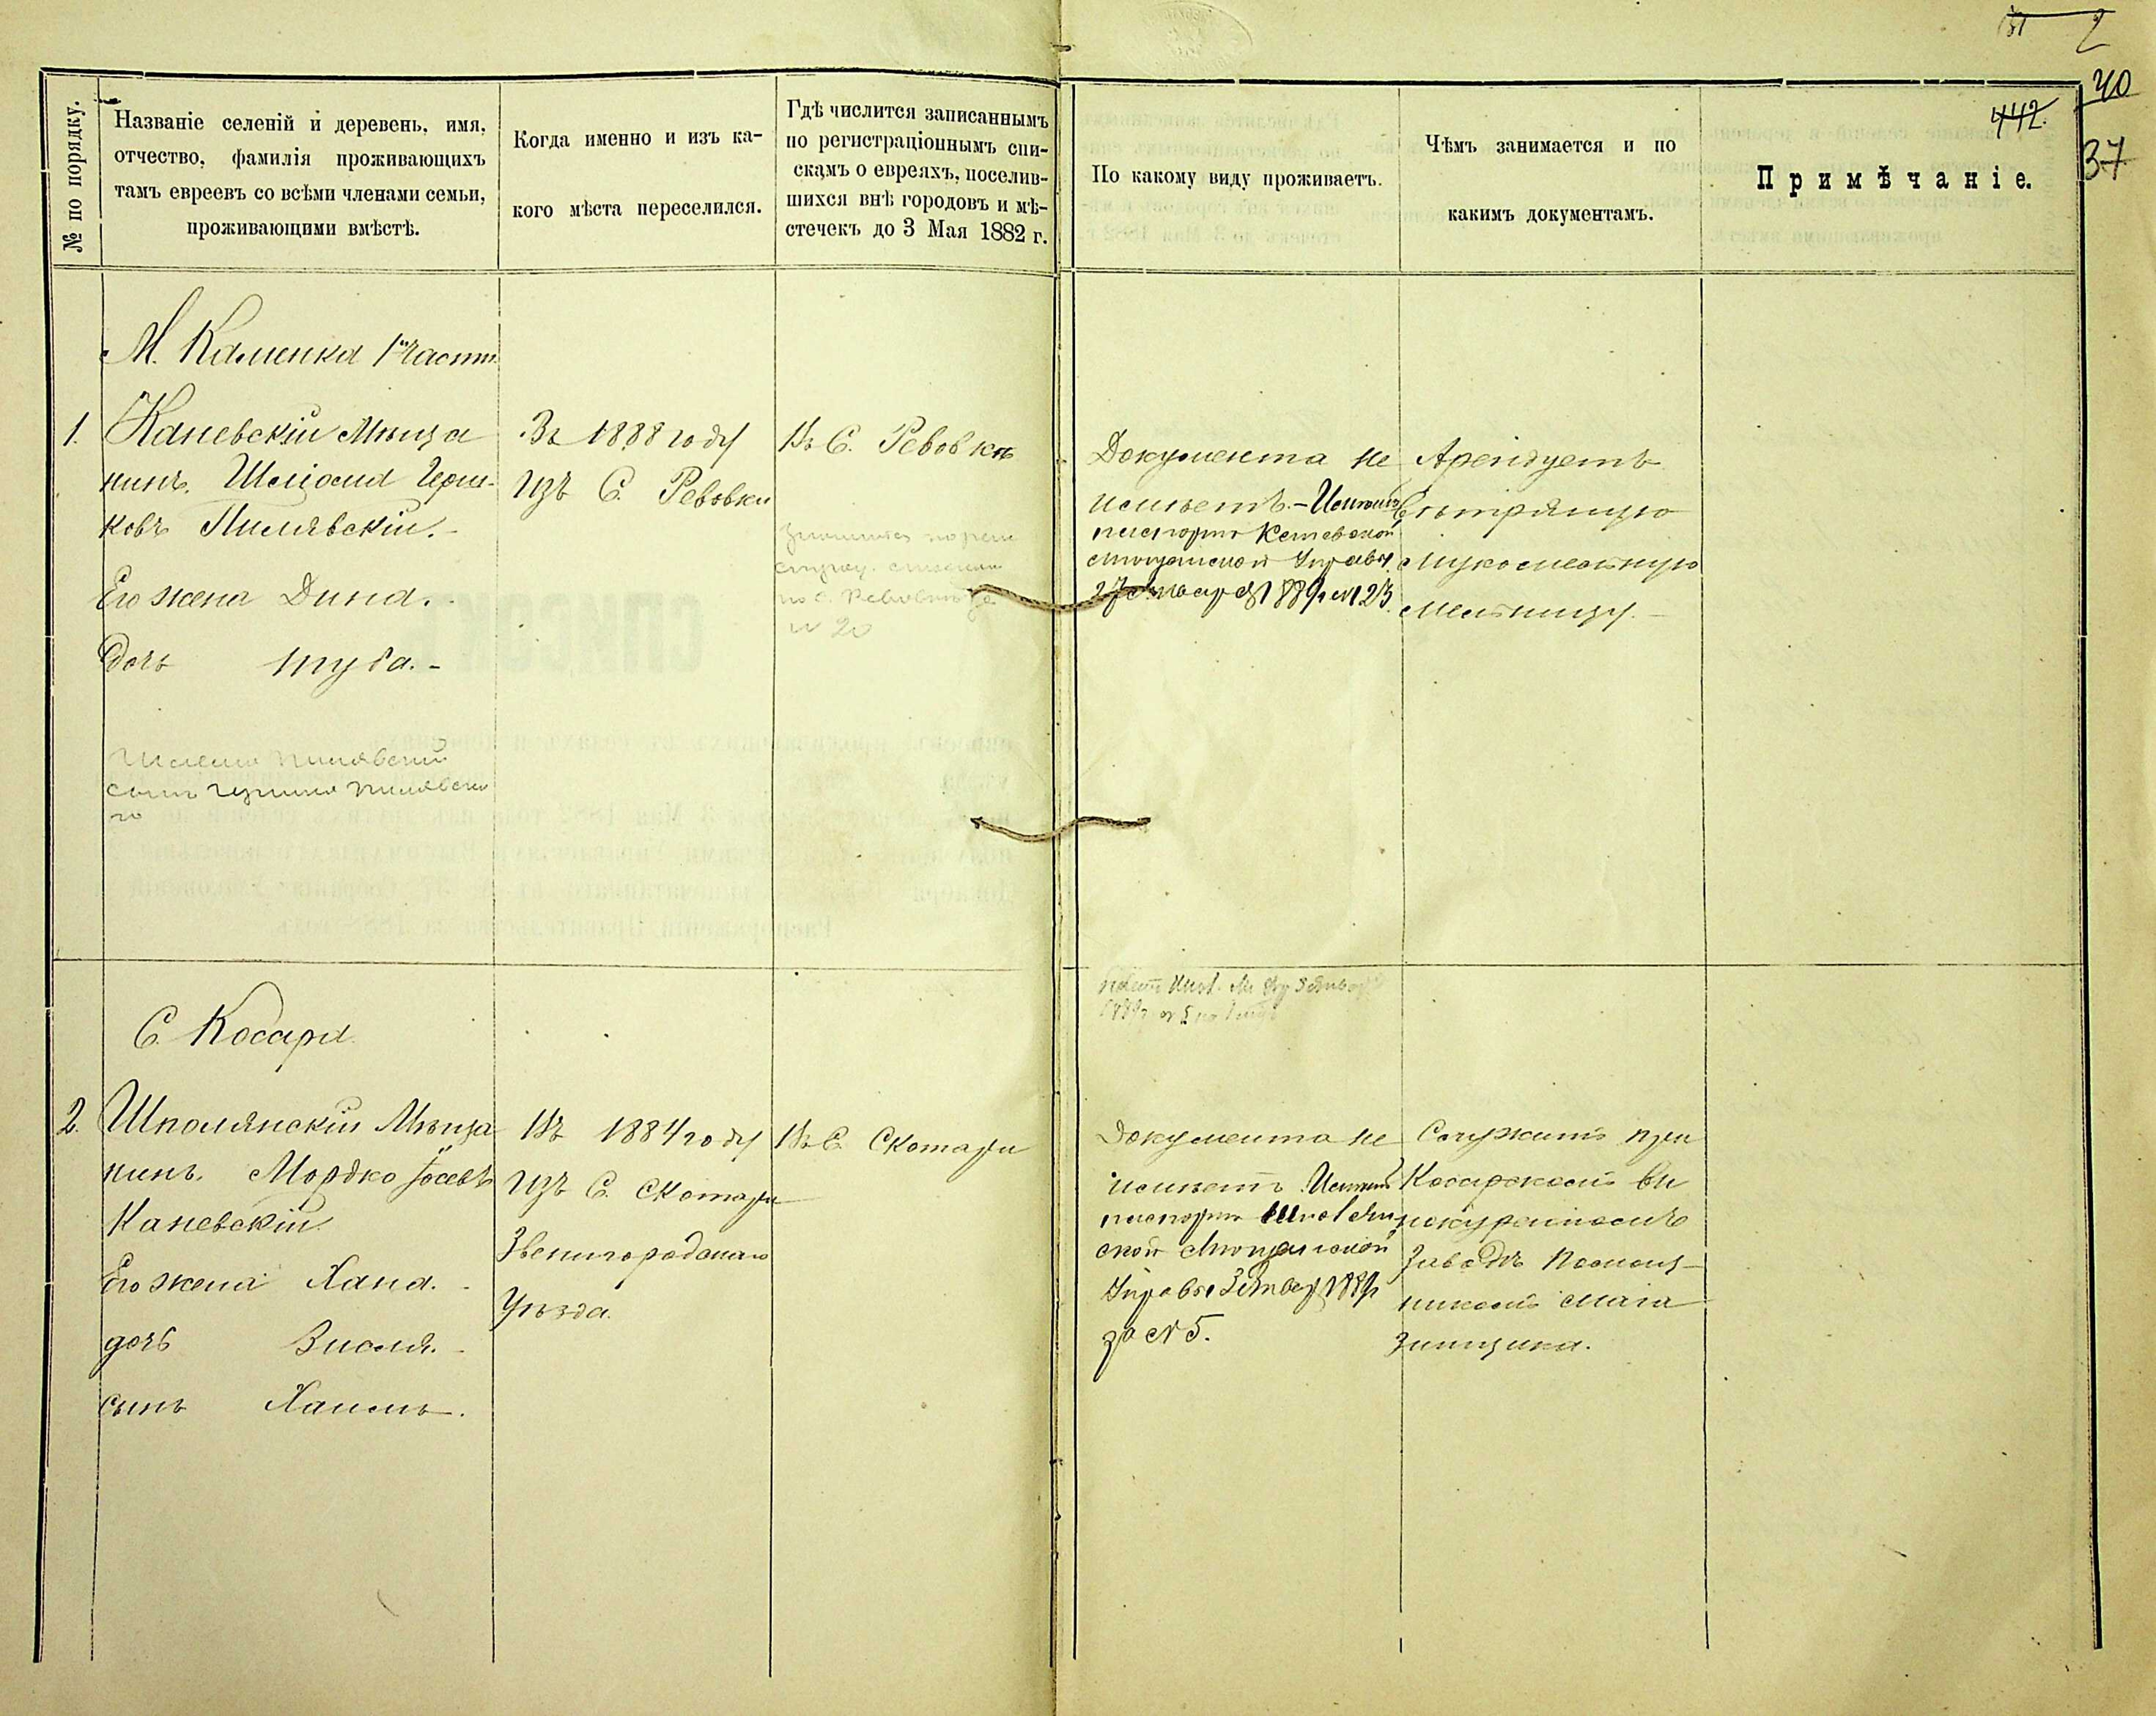 2
40
442.
37
№ по порядку.
Названіе селеній и деревень, имя,
отчество, фамилія проживающихъ
тамъ евреевъ со всѣми членами семьи,
проживающими вмѣстѣ.
Когда именно и изъ ка-
кого мѣста переселился.
Гдѣ числится записаннымъ
по регистраціоннымъ спи-
скамъ о евреяхъ, поселив-
шихся внѣ городовъ и мѣ-
стечекъ до 3 Мая 1882 г.
По какому виду проживаетъ.
Чѣмъ занимается и по
какимъ документамъ.
Примѣчаніе.
М. Каменка 1й части
1.
Каневскій Мѣща
нинъ. Шліома Герш-
ковъ Пилявскій. -
Его жена Дина. -
дочь Туба. -
Шлиома Пилявский
сынъ Гершка Пилявска
го
Въ 1888 году
Изъ С. Ревовки
Въ С. Ревовкѣ
по С. Ревовкѣ за
№ 20
Документа не
имѣетъ. - Имѣетъ
паспортъ Каневской
Мѣщанской Управы
27 января 1889 г. № 23.
Арендуетъ
вѣтряную
мукомольную
мельницу. -
С. Косари
2.
Шполянскій Мѣща
нинъ. Мордко Іосевъ
Каневскій
Его жена Хана. -
дочь Висля. -
сынъ Хаимъ.
Въ 1884 году
Изъ С. Скотари
Звенигородскаго
Уѣзда.
Въ С. Скотари
1889 г.
Документа не
имѣетъ Имѣетъ
паспортъ Шполян
ской Мѣщанской
Управы 3 Январ 1889 г
за № 5.
Служитъ при
Косарскомъ ви
нокуренномъ
Заводѣ помощ-
никомъ мага
зинщика.